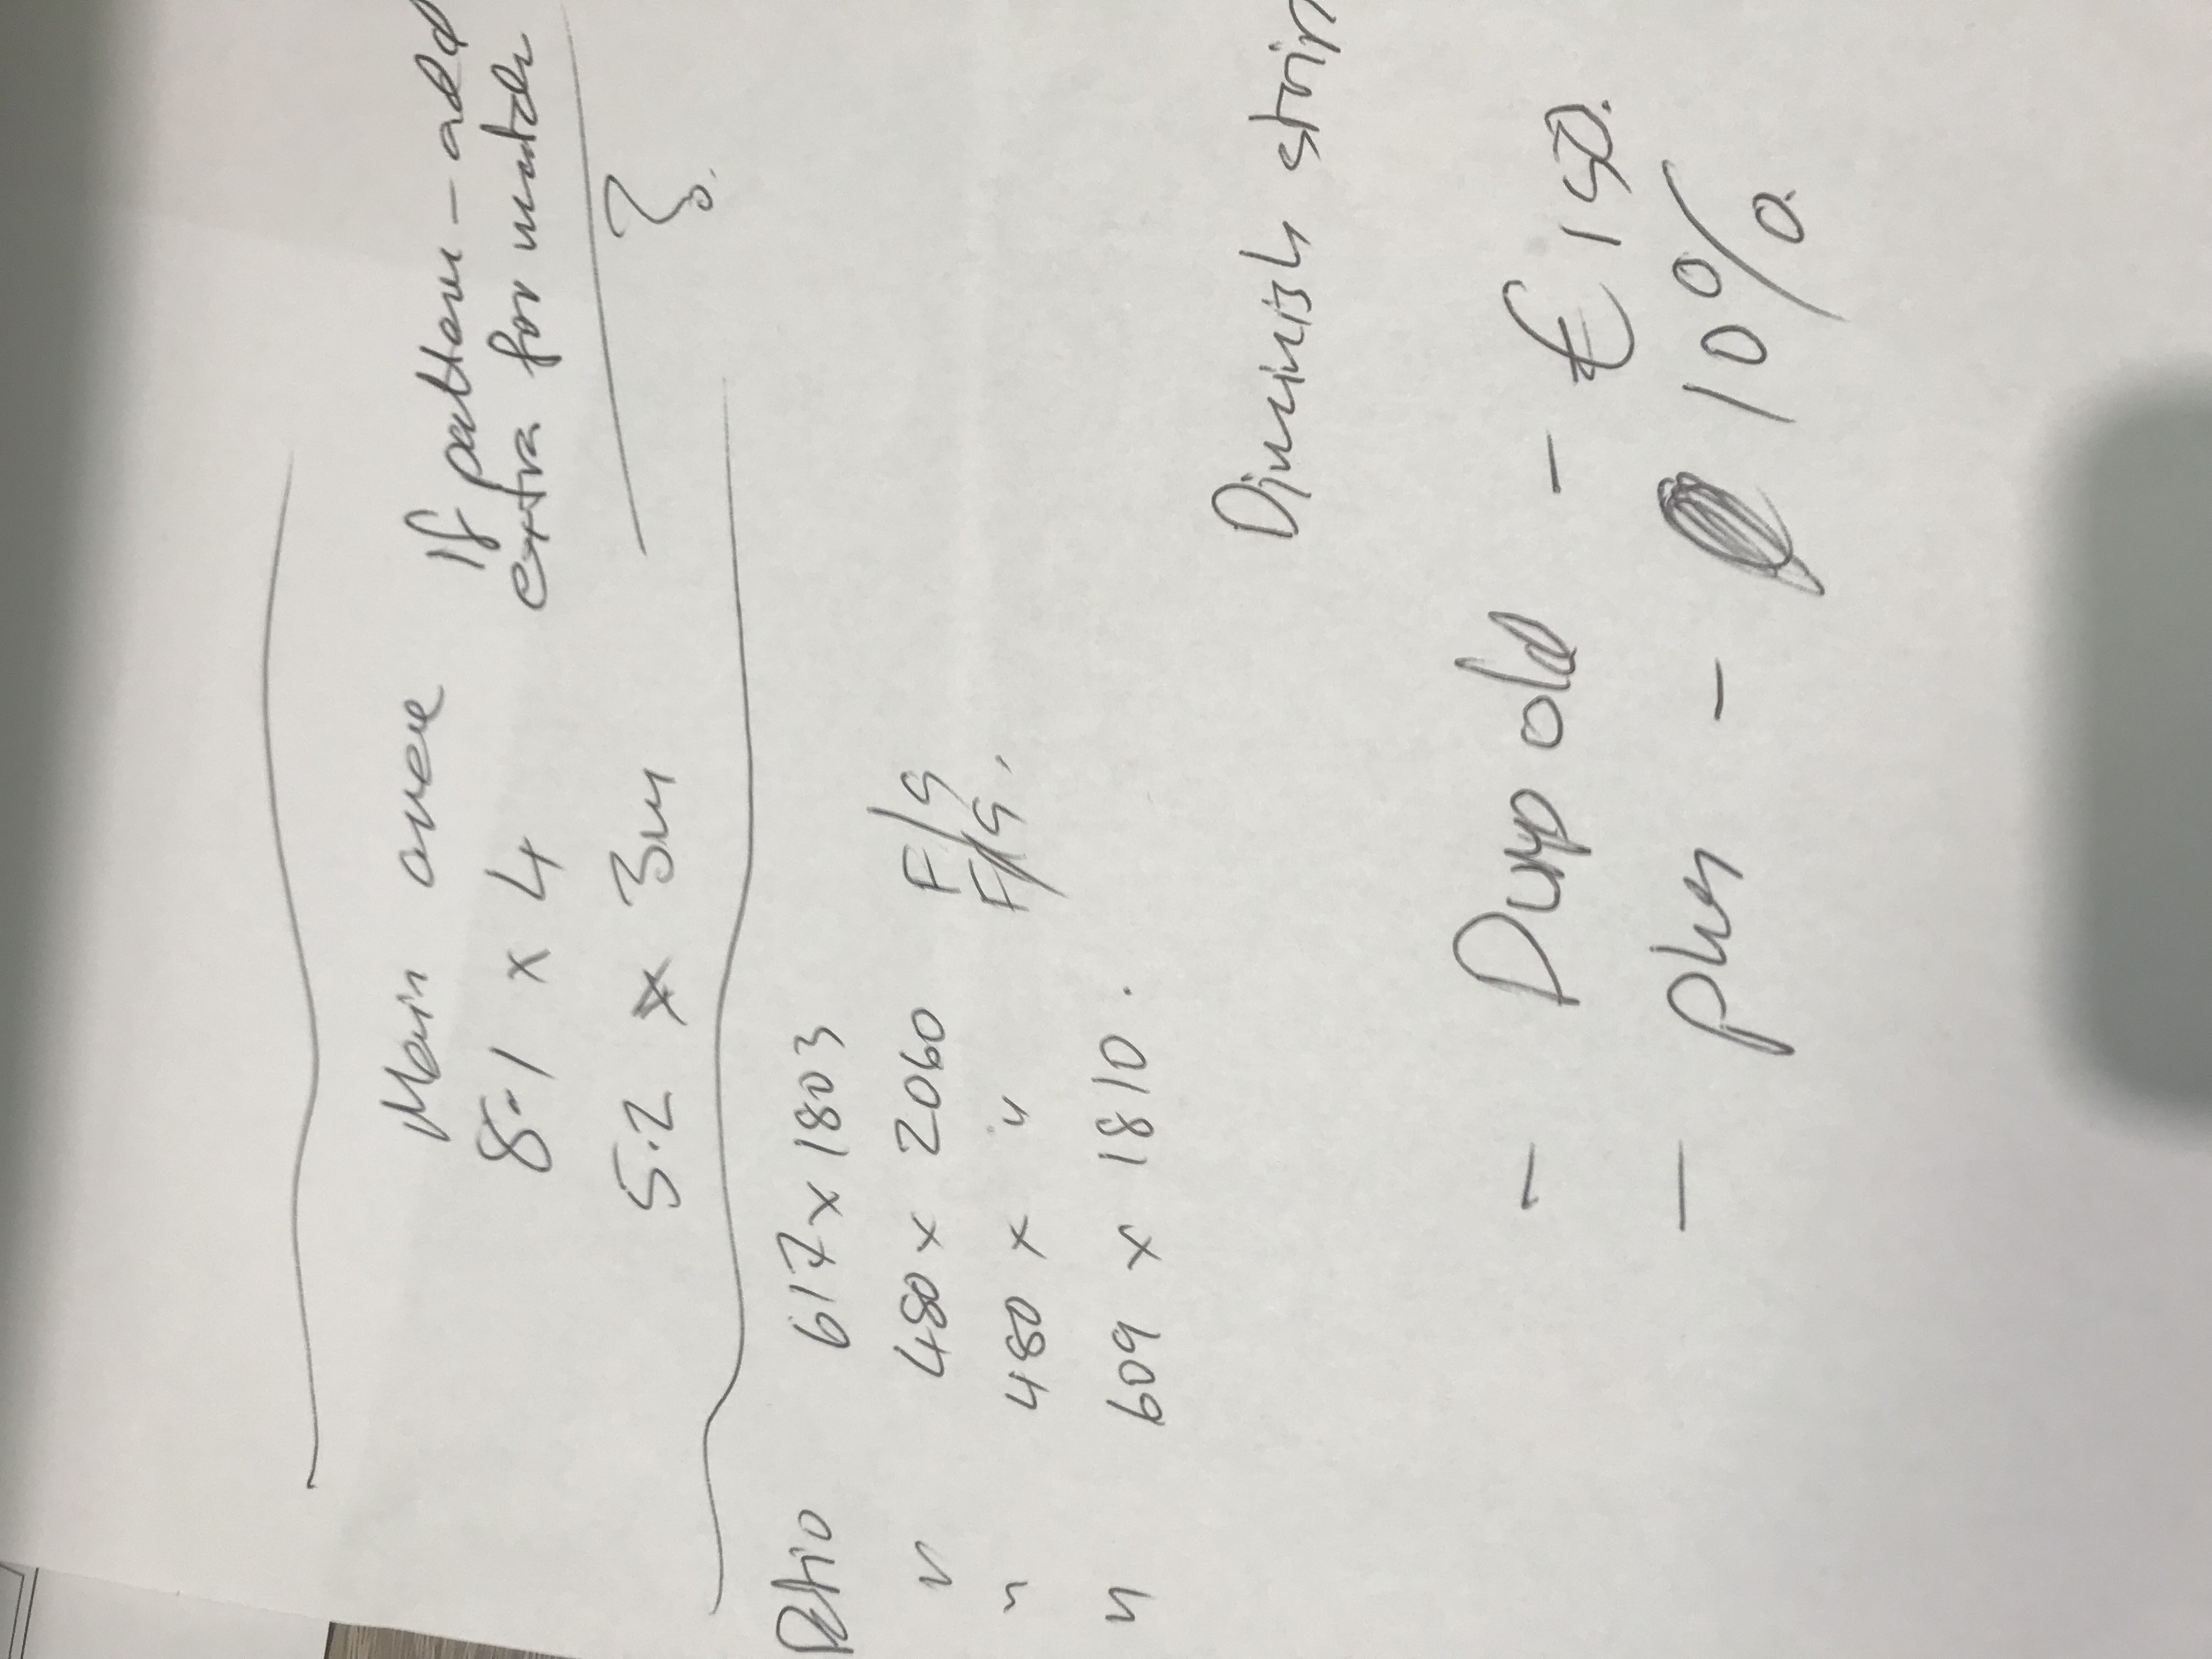 Main area If pattern - add
8.1 x 4 extra for match
5.2 x 3m
Patio 617 x 1803
" 480 x 2060 F/G
" 480 x " F/G.
" 609 x 1810.
Diminish strip
- Dump old - € 150.
- plus - 10%.